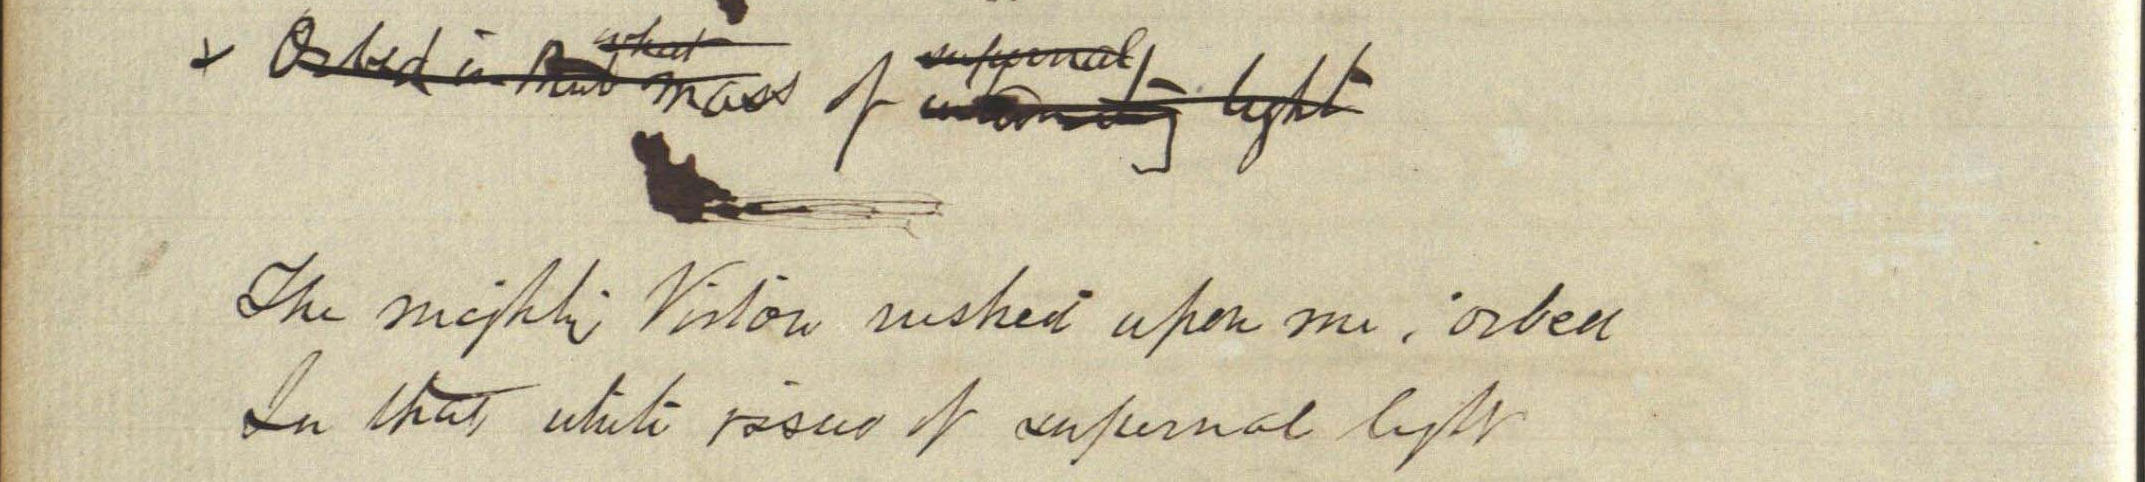 what supernal
x Orbed in that mass of light
The mighty Vision rushed upon me; orbed
In that white issue of supernal light